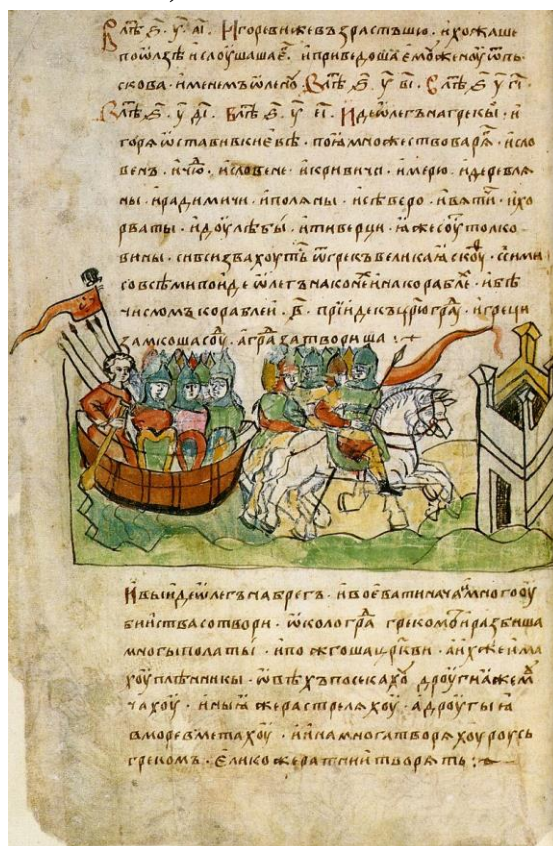 В лѣⷮ ҂ѕ҃ . у҃ . аı҃ . Игоревижевъзрастъшю . ихожаше
поѡлзѣ ислоушаша є҃ . иприведошаеможеноу ѿпь
скова . именемъ ѡлену . В лѣⷮ ҂ѕ҃ у҃ вı҃ . В лѣⷮ ҂ѕ҃ у҃ гı҃ .
В лѣⷮ ҂ѕ҃ у҃ дı҃ . В лѣⷮ ҂ѕ҃ у҃ еı҃ . Идеѡлегънагрекы . и
горѧ ѡставивкиевѣ . поѧ множествоварѧⷢ . исло
венъ . ичюⷣ . исловене . икривичи . имерю . идеревлѧ
ны . ирадимичи . иполѧны . исѣверо . ивѧтичи . ихо
рваты . идоулѣбы . итиверци . ꙗжесоутолко
вины . сивсизвахоутьⷭ ѿгрекъвеликаꙗскоуⷴ . ссими
совсѣмипоидеѡлегънаконеⷯинакораблеⷯ . ибѣ
числомъкораблеи . в҃ . приидекъцрюграⷣ . игреци
замкошасоуⷣ . аграⷣзатвориша :
Ивыидеѡлегънабрегъ . ивоеватинача . имногооу
биистваcотвори . ѡкологра греко . иразбиша
многыполаты . ипожгошацркви . аихжеима
хоуплѣнникы . ѡвѣхъпосекахоу дроугиꙗжемⷱ
чахоу . иныꙗжерастрелѧхоу . адроугыꙗ
вморевметахоу . иинамноготворѧхоуроусь
грекомъ . еликожератниитворѧть :